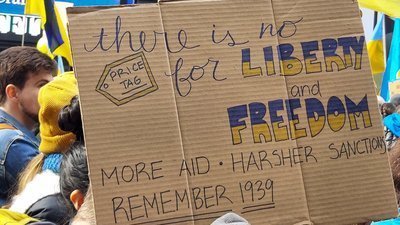 there is no
PRICE
TAG
for LIBERTY
and
FREEDOM
MORE AID · HARSHER SANCTION
REMEMBER 1939